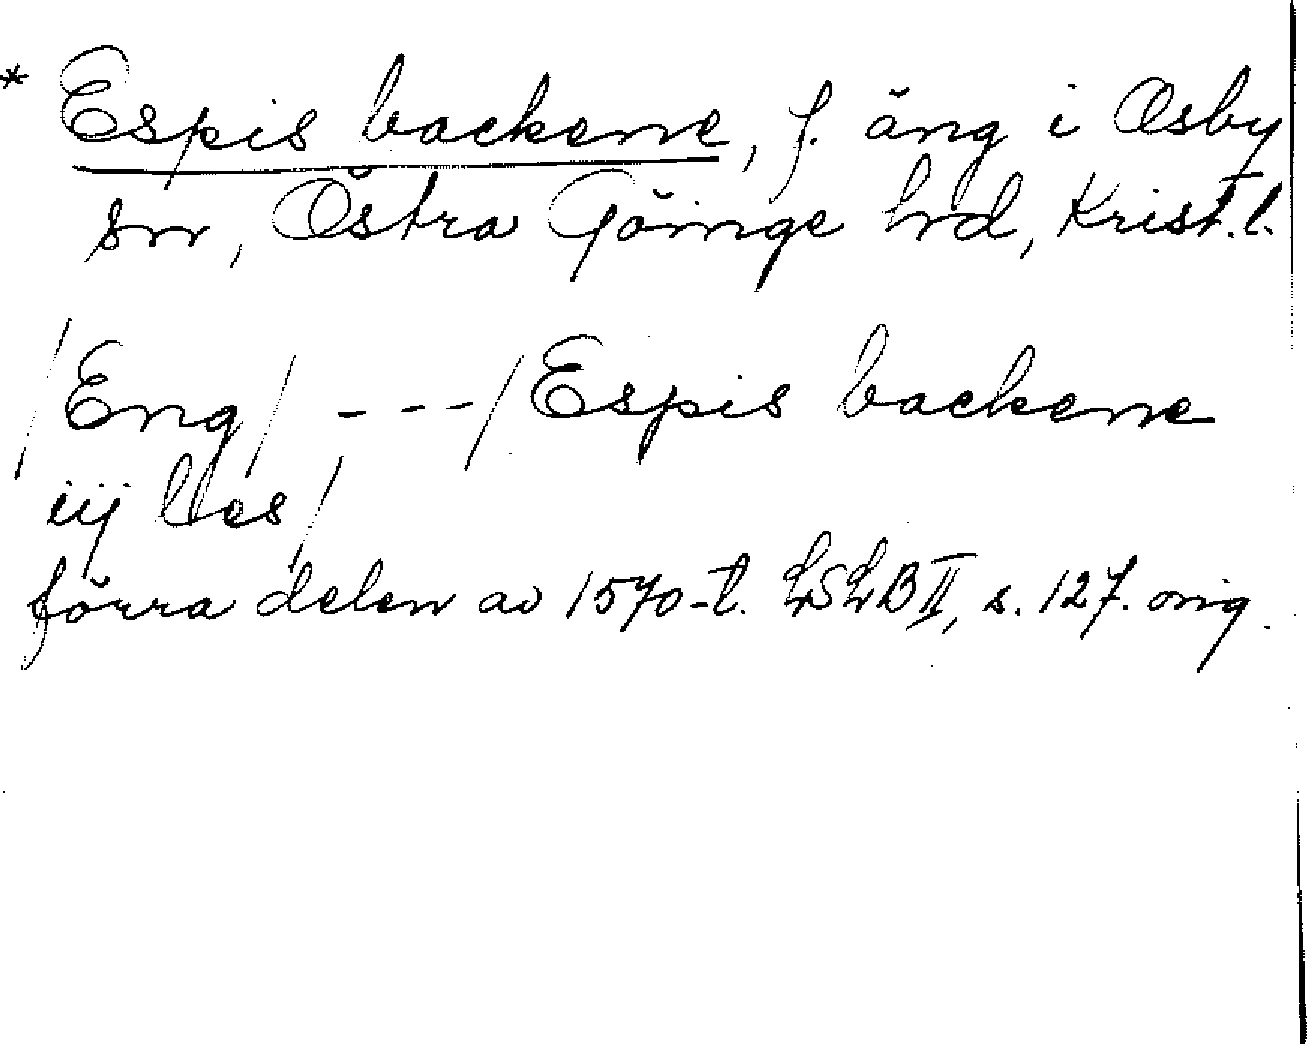 * Espis backene, f. äng i Osby
sn, Östra Göinge hd, Krist. l.
/Eng/ ---/Espis backene
iij lles/
förra delen av 1570-t. LSLB II, s. 127. orig.